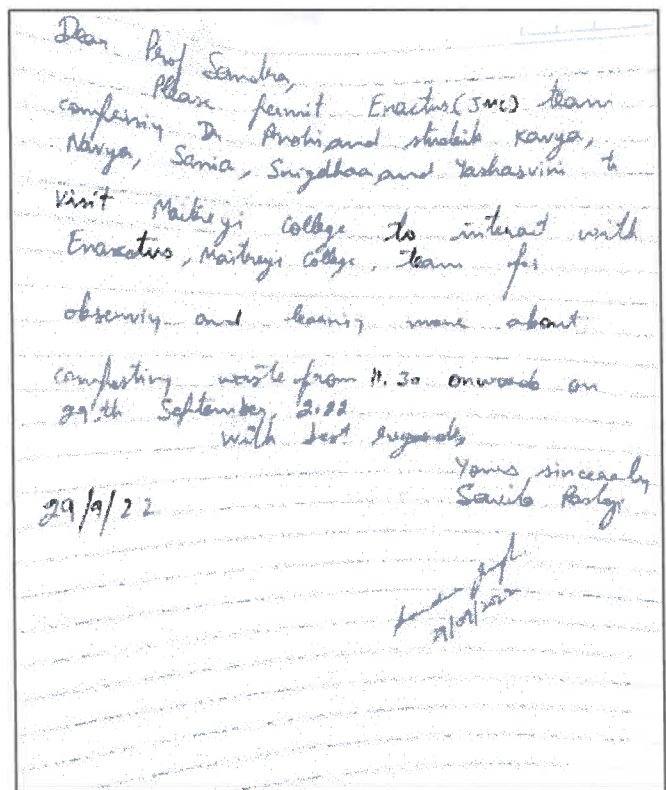 Dear Prof Sandra,
Please permit Enactus (JMC) team
comprising Dr Arohi, and students Kavya,
Navya, Sania, Snigdhaa, and Yashasvini to
visit Maitreyi College to interact with
Enaxctus, Maitreyi College, team for
observing and learning more about
composting waste from 11.30 onwards on
29th September, 2022
With best regards,
Yours sincerely
29/9/22
29/09/2022